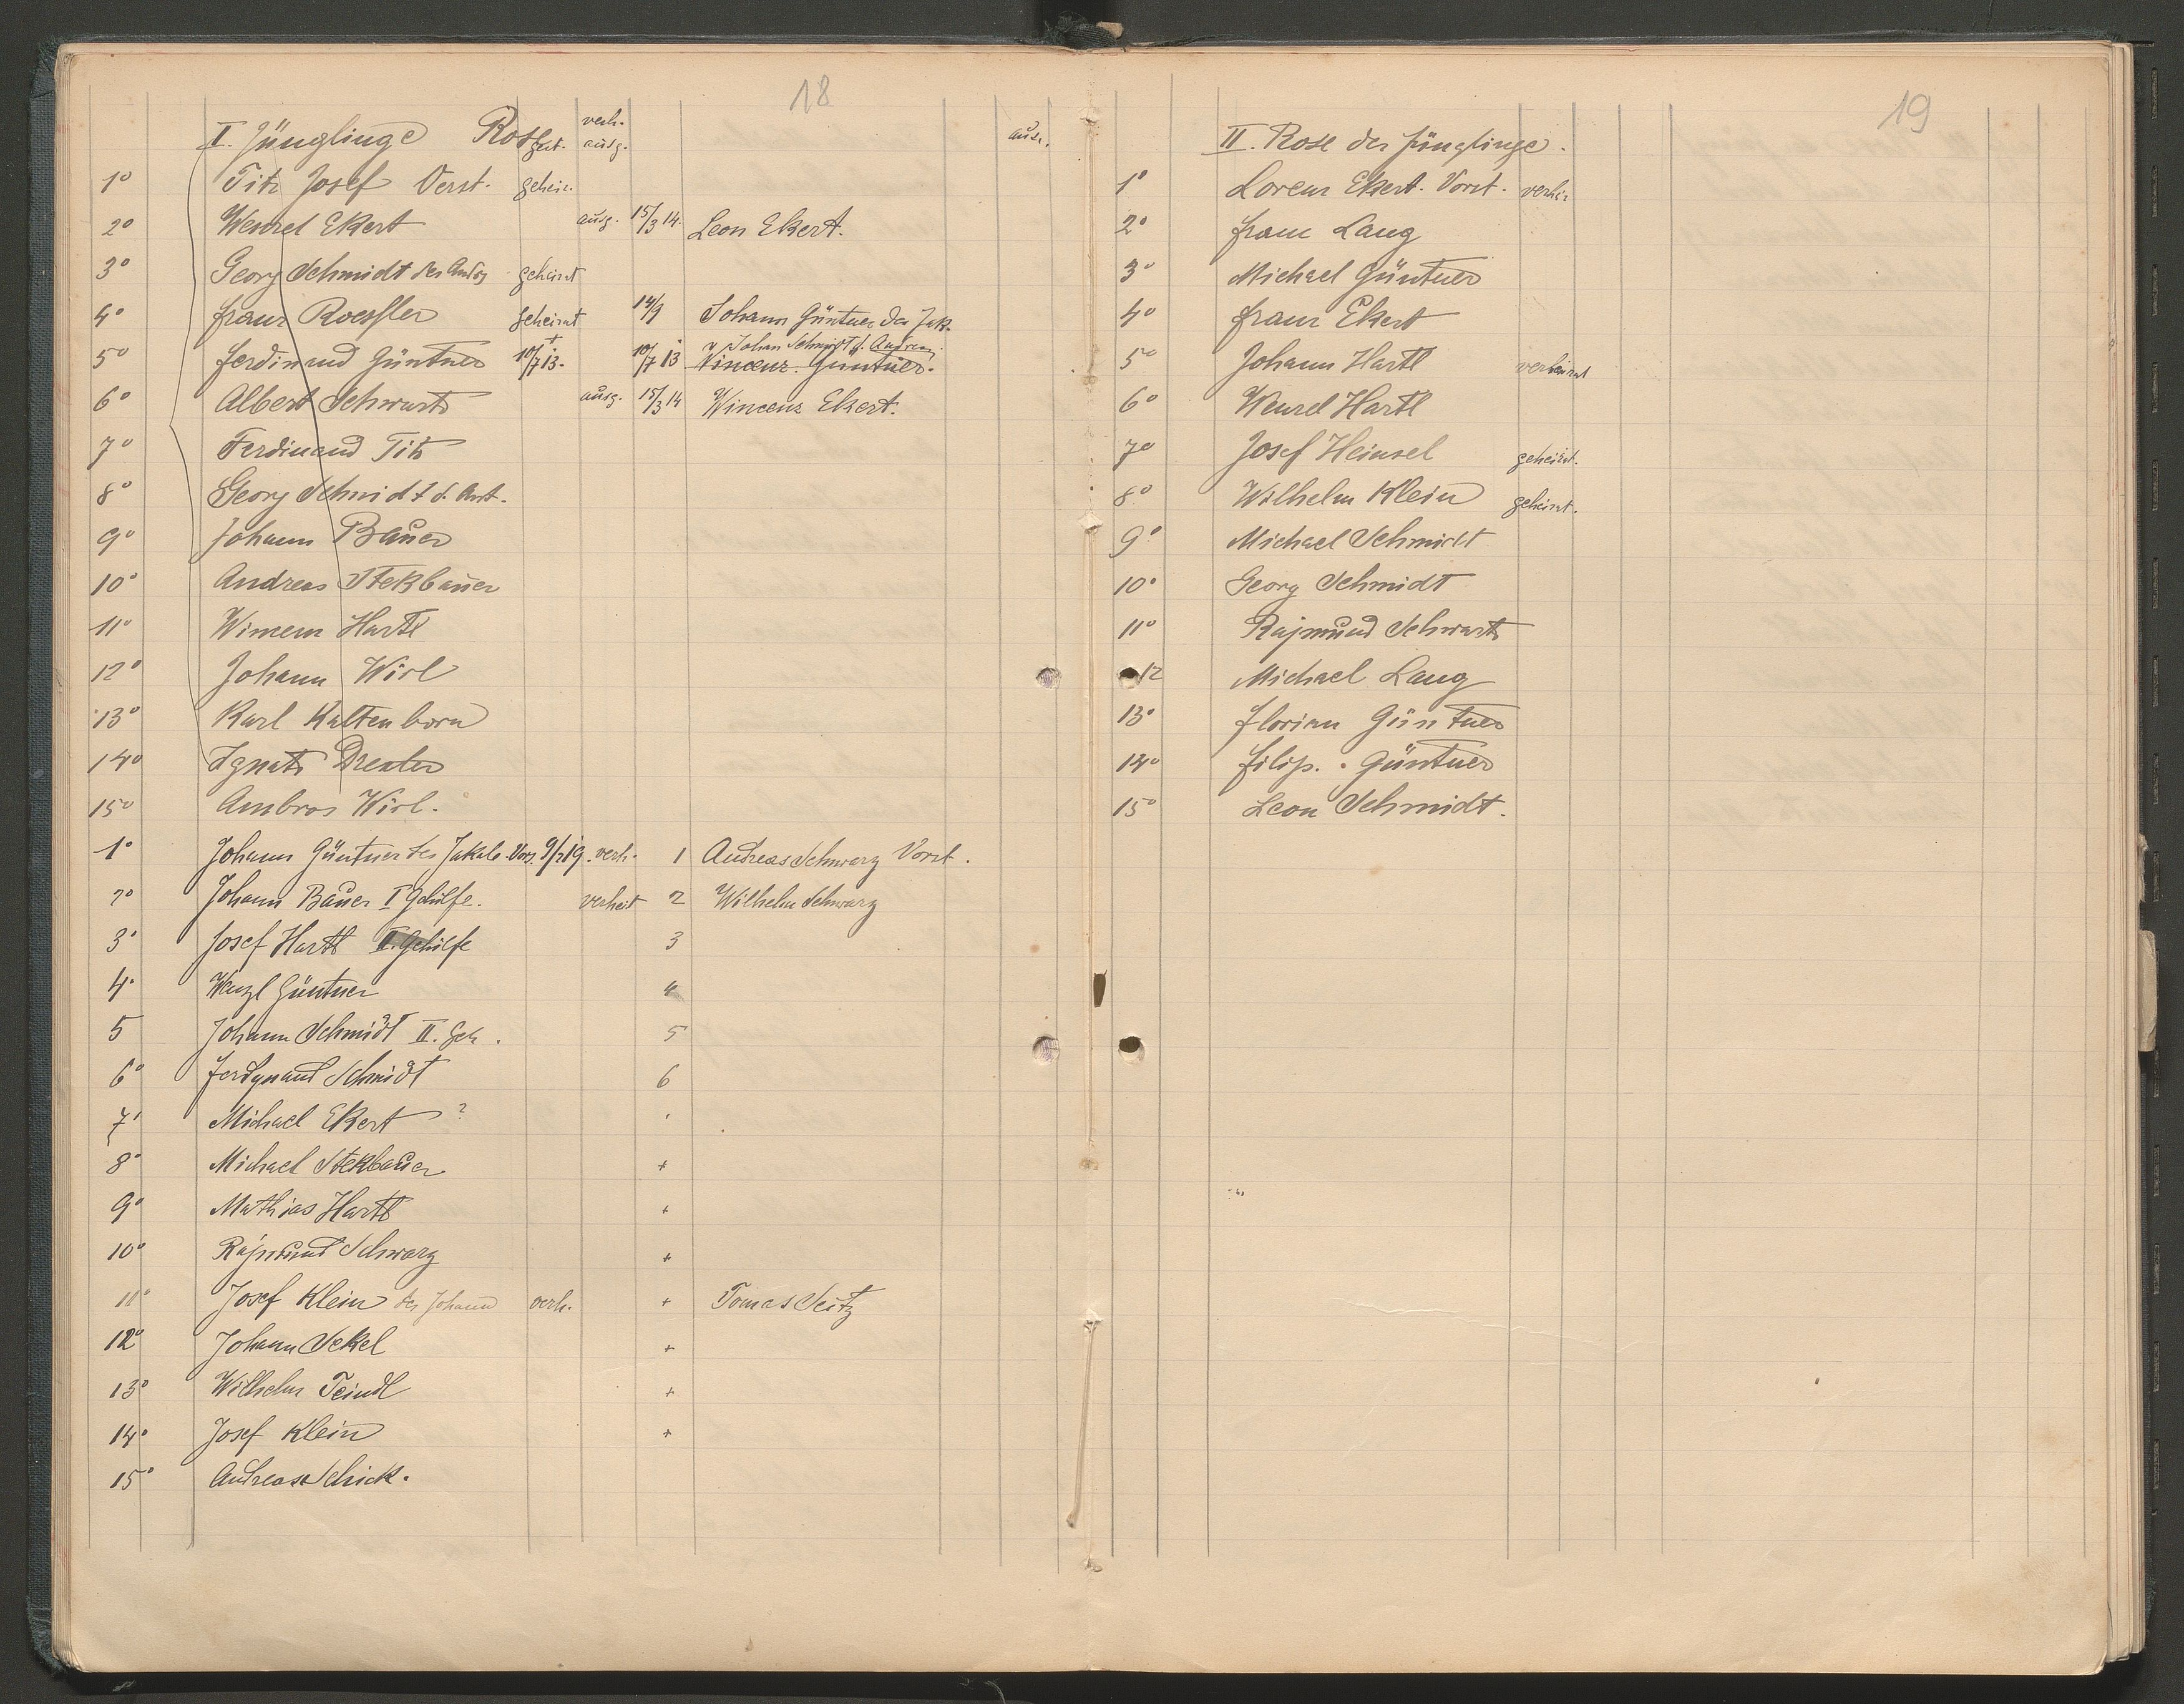 18
I. Jünglinge Rose gest. verh. ausg. ausr.
1° Titz Josef Verst. geheir.
2° Wenzel Ekert ausg. 15/3 14. Leon Ekert.
3° Georg Schmidt des Andr geheirat
4° Franz Roessler geheirat 14/9 Johann Güntner des Jak.
Johan Schmidt d. Andreas
5° Ferdinand Güntner + 10/7 13. 10/7 13 Vincenz Güntner.
6° Albert Schwartz ausg. 15/3 14 Wincenz Ekert.
7° Ferdinand Titz
8° Georg Schmidt d. Ant.
9° Johann Bauer
10° Andreas Stekbauer
11° Wincenz Hartl
12° Johann Wirl
13° Karl Kaltenborn
14° Ignatz Drexler
15° Ambros Wirl.
1° Johann Güntner des Jakob. Vors. 9/219. verh. 1 Andreas Schwarz Vorst.
2° Johann Bauer I Gehilfe. verheit 2 Wilhelm Schwarz
3° Josef Hartl II. Gehilfe 3
4° Wenzl Güntner 4
5 Johann Schmidt II. Geh. 5
6° Ferdynand Schmidt 6
7° Michael Ekert ?
8° Michael Stekbauer +
9° Mathias Hartl +
10° Rajmund Schwarz +
11° Josef Klein des Johann verh. + Tomas Seitz
12° Johann Sekel +
13° Wilhelm Teindl +
14° Josef Klein +
15° Andreas Schick.
19
II. Rose der Jünglinge.
1° Lorenz Ekert. Vorst. verheir
2° Franz Lang
3° Michael Güntner
4° Franz Ekert
5° Johann Hartl verheirat
6° Wenzel Hartl
7° Josef Heinzel geheirat.
8° Wilhelm Klein geheirat.
9° Michael Schmidt
10° Georg Schmidt
11° Rajmund Schwartz
12 Michael Lang
13° Florian Güntner
14° Filip. Güntner
15° Leon Schmidt.